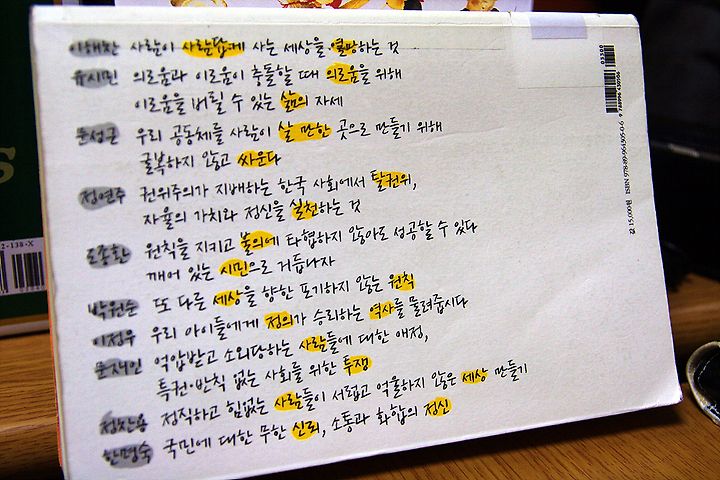 이해찬 사람이 사람답게 사는 세상을 열망하는 것
유시민 의로움과 이로움이 충돌할 때 의로움을 위해
이로움을 버릴 수 있는 삶의 자세
문성근 우리 공동체를 사람이 살 만한 곳으로 만들기 위해
굴복하지 않고 싸운다
정연주 권위주의가 지배하는 한국 사회에서 탈권위,
자율의 가치와 정신을 실천하는 것
도종환 원칙을 지키고 불의에 타협하지 않아도 성공할 수 있다
깨어 있는 시민으로 거듭나자
박원순 또 다른 세상을 향한 포기하지 않는 원칙
이정우 우리 아이들에게 정의가 승리하는 역사를 물려줍시다
문재인 억압받고 소외당하는 사람들에 대한 애정,
특권·반칙 없는 사회를 위한 투쟁
정찬용 정직하고 힘없는 사람들이 서럽고 억울하지 않은 세상 만들기
한명숙 국민에 대한 무한 신뢰, 소통과 화합의 정신
03300
9 788996 450566
값 15,000원 ISBN 978-89-964505-0-6
2-138-X